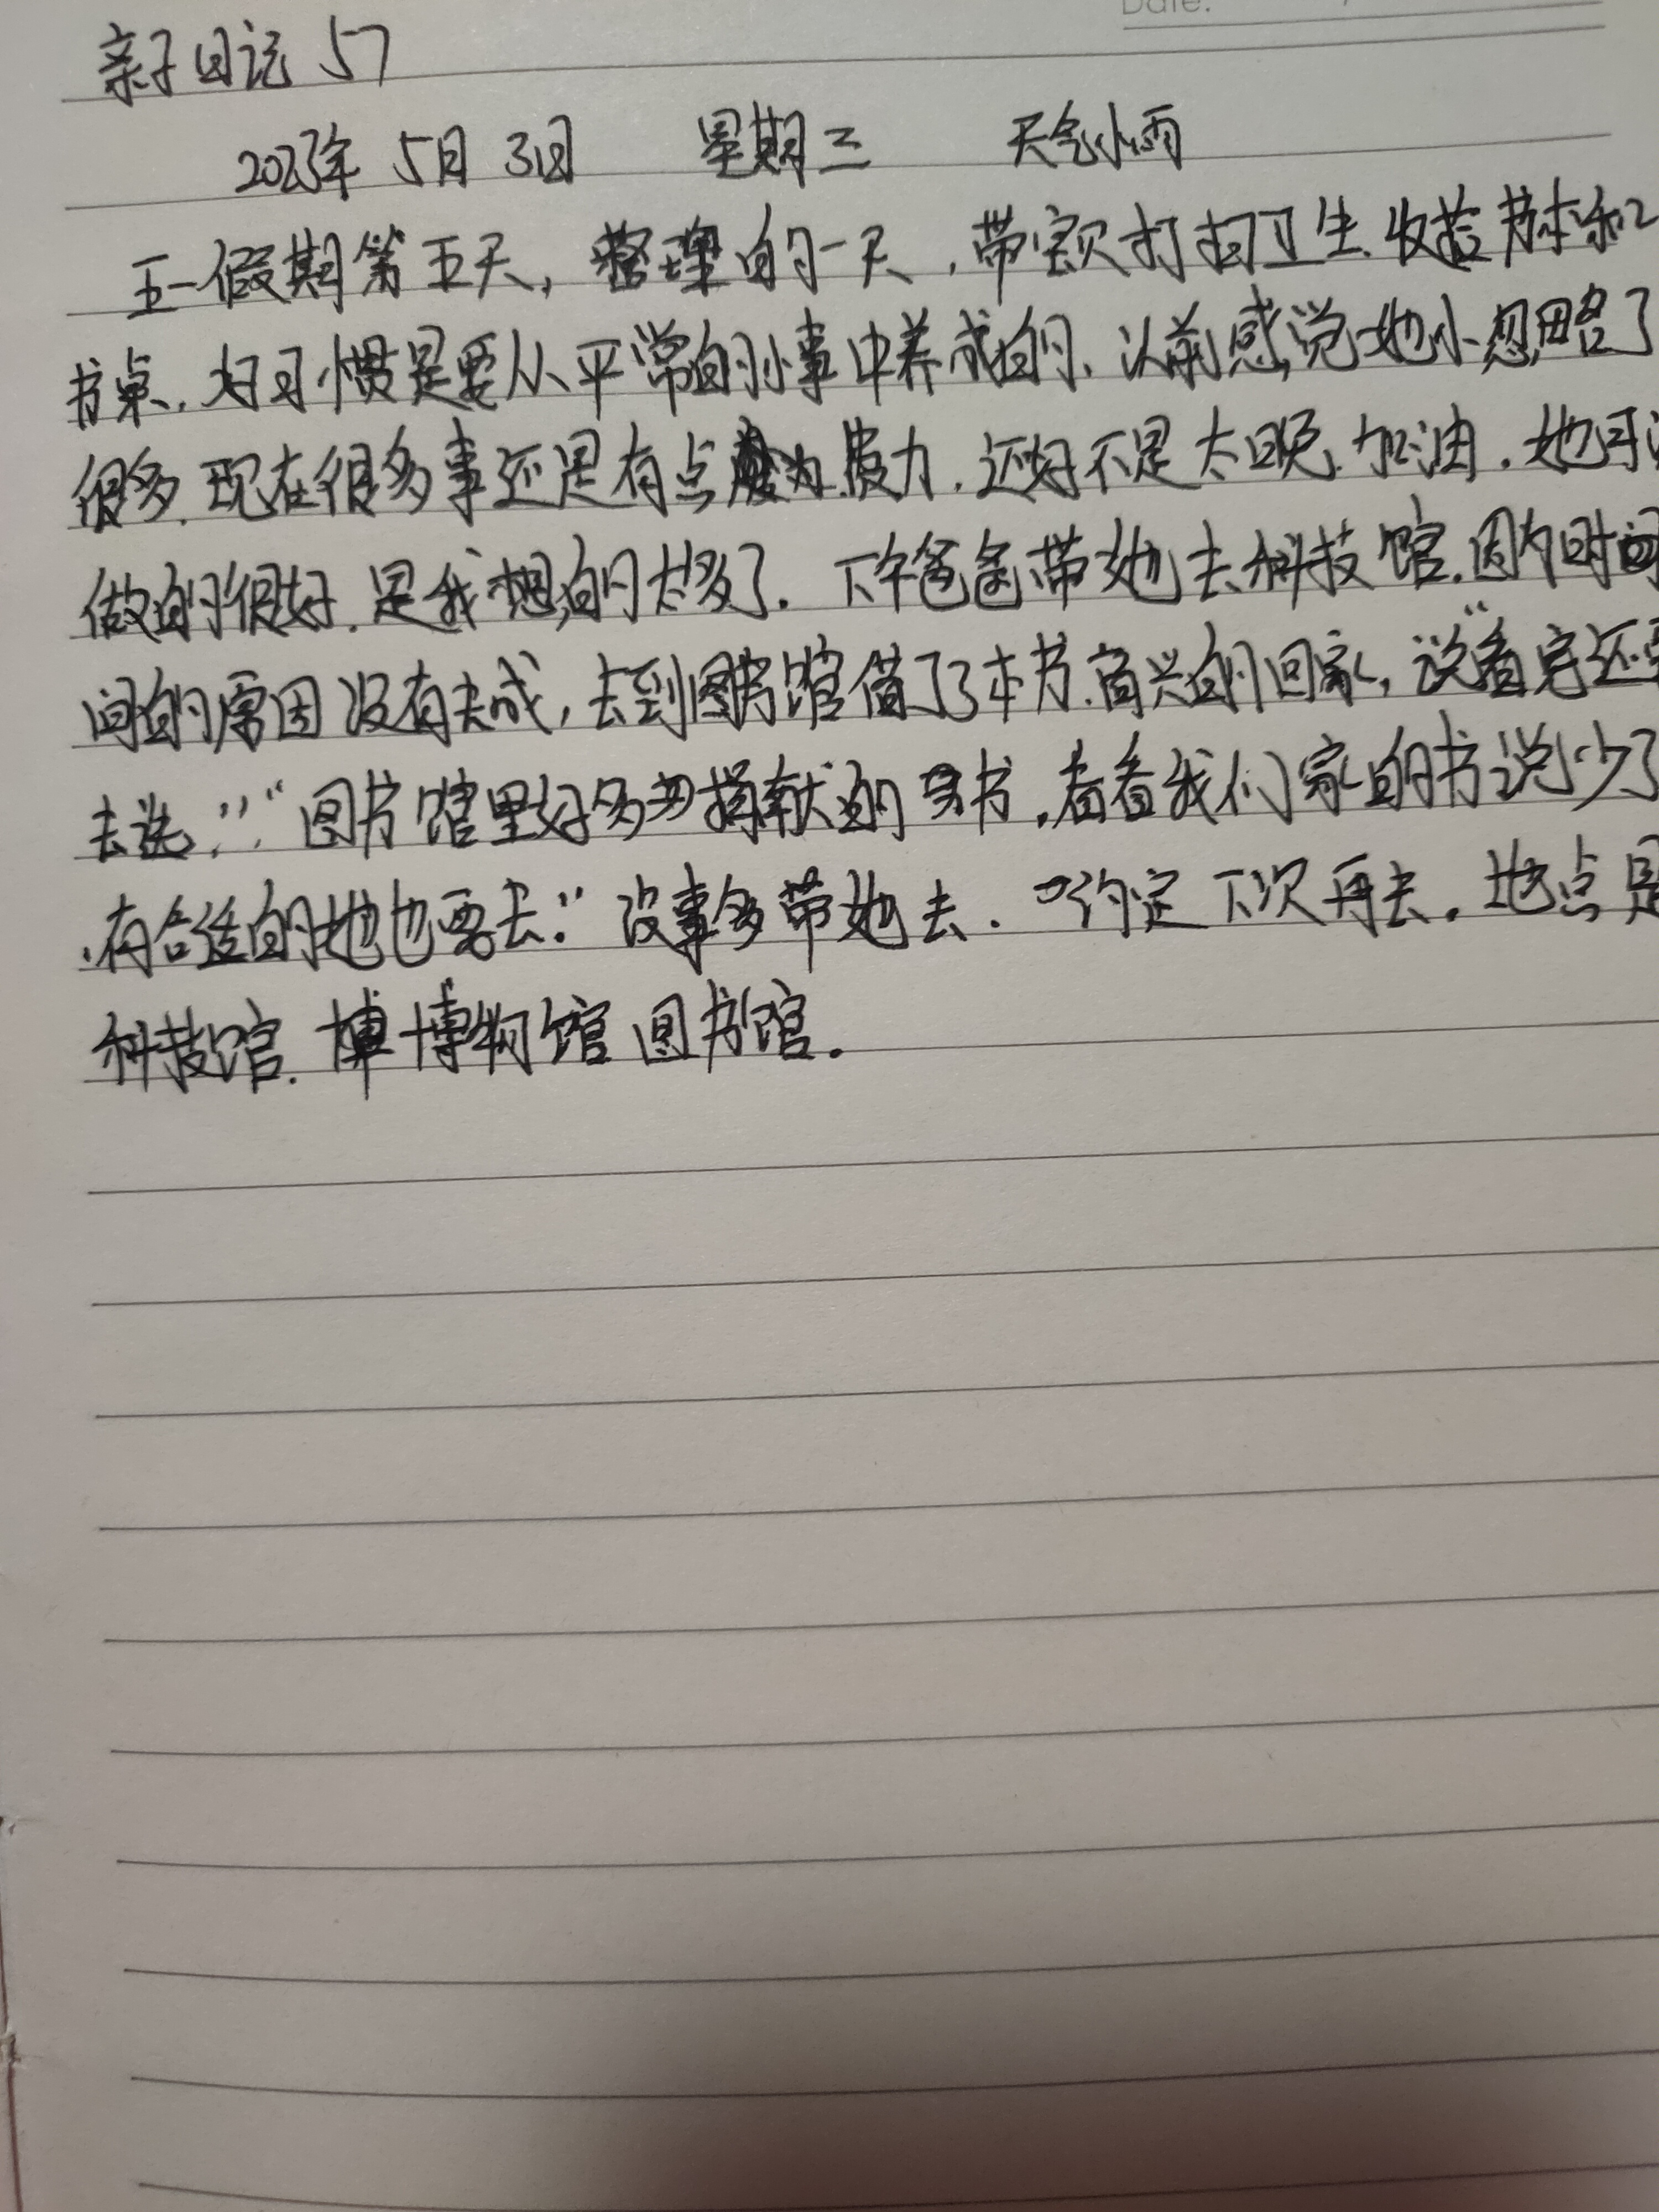 Date:
亲子日记 57
2023年 5月 3日 星期三 天气小雨
五一假期第五天，整理的一天，带宝贝打扫卫生.收拾书本和
书桌.好习惯是要从平常的小事中养成的.以前感觉她小忽略了
很多.现在很多事还是有点费力.还好不是太晚.加油.她
做的很好.是我想的太多了.下午爸爸带她去科技馆.因为时间
间的原因没有去成，去到图书馆借了3本书.高兴的回家，说“看完还要
去选.”“图书馆里好多捐献的书.看看我们家的书说少了
.有合适的她也要去.”没事多带她去.约定下次再去.地点是
科技馆.博物馆 图书馆.